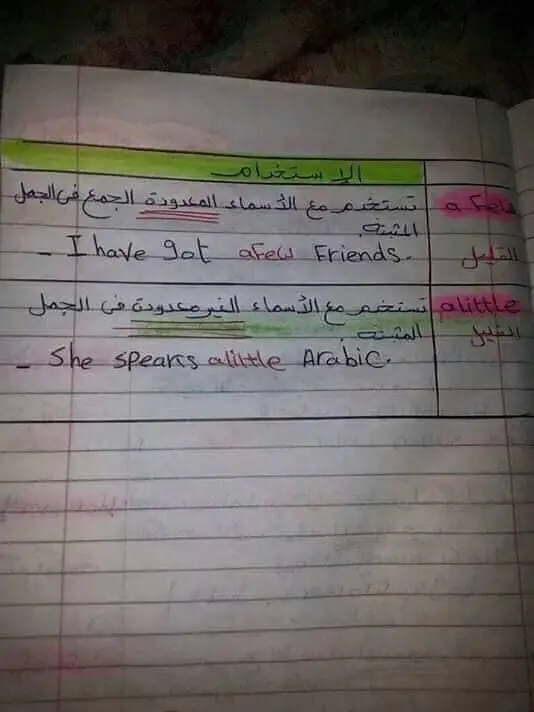 الإستخدام
a few
تستخدم مع الأسماء المعدودة الجمع فى الجمل
المثبته.
القليل
- I have got a few Friends.
a little
تستخدم مع الأسماء الغير معدودة فى الجمل
القليل
المثبته.
- She speaks a little Arabic.